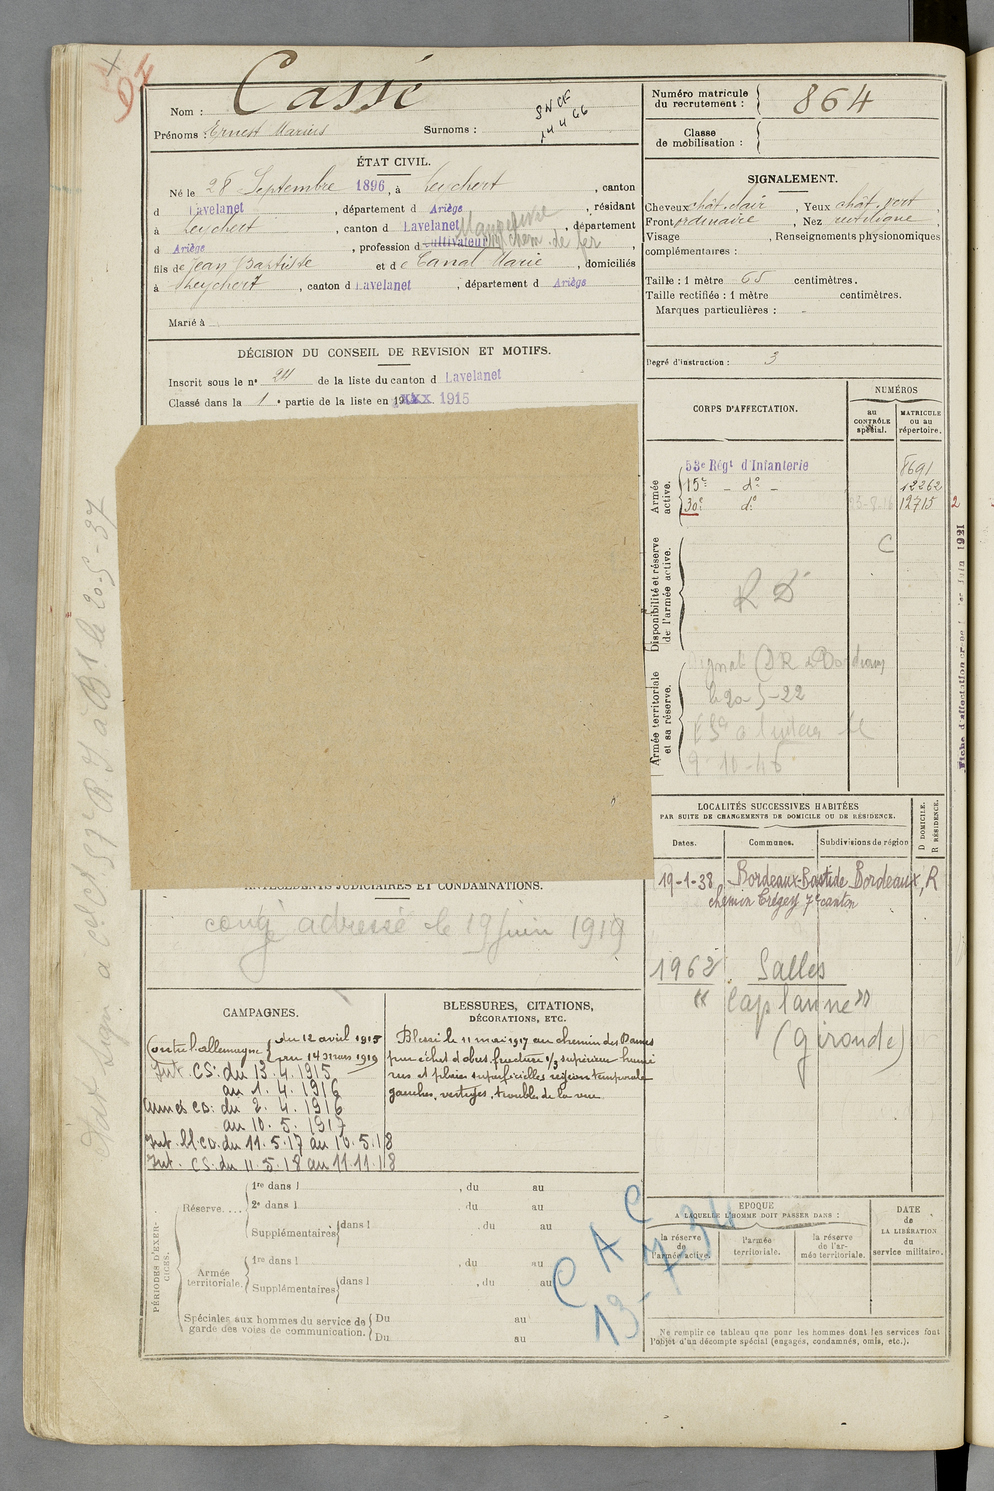 Cassé
Nom :
Prénoms : Ernest Marius Surnoms :
SNCF
14 4 66
Numéro matricule
du recrutement : 864
Classe
de mobilisation :
ÉTAT CIVIL.
Né le 28 Septembre 1896, à Leychert, canton
d Lavelanet, département d Ariège, résidant
à Leychert, canton d Lavelanet, département
d Ariège, profession d cultivateur Manœuvre chem. de fer,
fils de Jean Baptiste et de Canal Marie, domiciliés
à Leychert, canton d Lavelanet, département d Ariège
Marié à
SIGNALEMENT.
Cheveux chât. clair, Yeux chât. vert,
Front ordinaire, Nez rectiligne
Visage , Renseignements physionomiques
complémentaires :
Taille : 1 mètre 65 centimètres.
Taille rectifiée : 1 mètre centimètres.
Marques particulières : -
Degré d'instruction : 3
DÉCISION DU CONSEIL DE REVISION ET MOTIFS.
Inscrit sous le nº 24 de la liste du canton d Lavelanet
Classé dans la 1e partie de la liste en 1915
CORPS D'AFFECTATION.
NUMÉROS
au
CONTRÔLE
spécial.
MATRICULE
ou au
répertoire.
Armée
active.
53e Régt d'Infanterie 8691
15e - do - 12262
30e do 12715 2
C
Disponibilité et réserve
de l'armée active.
R D
Armée territoriale
et sa réserve.
Signal (DR de Bordeaux
le 20-5-22
9-10-46
Fiche d'affectation
Juin 1921
LOCALITÉS SUCCESSIVES HABITÉES
PAR SUITE DE CHANGEMENTS DE DOMICILE OU DE RÉSIDENCE.
Dates. Communes. Subdivisions de région
D DOMICILE.
R RÉSIDENCE.
19-1-38 Bordeaux-Bastide Bordeaux, R
chemin Crégey 7e canton
1962 Salles
« Caplanne »
(Gironde)
ANTÉCÉDENTS JUDICIAIRES ET CONDAMNATIONS.
congé adressé le 19 Juin 1919
CAMPAGNES.
Contre l'allemagne du 12 avril 1915
au 14 mars 1919
Int. CS: du 13.4.1915
au 1.4.1916
Armées CD: du 2.4.1916
au 10.5.1917
Int. Bl. CD. du 11.5.17 au 10.5.18
Int. CS. du 11.5.18 au 11.11.18
BLESSURES, CITATIONS,
DÉCORATIONS, ETC.
Blessé le 11 mai 1917 au chemin des Dames
par éclat d'obus. fracture 1/3 supérieur humé
rus et plaies superficielles région temporale
gauches, vertiges, troubles de la vue.
PÉRIODES D'EXER-
CICES.
Réserve....
1re dans l , du au
2e dans l , du au
Supplémentaires dans l , du au
Armée
territoriale.
1re dans l , du au
Supplémentaires dans l , du au
Spéciales aux hommes du service de
garde des voies de communication.
Du au
Du au
C A C
13-7-34
ÉPOQUE
A LAQUELLE L'HOMME DOIT PASSER DANS :
la réserve
de
l'armée active.
l'armée
territoriale.
la réserve
de l'ar-
mée territoriale.
DATE
de
LA LIBÉRATION
du
service militaire.
Ne remplir ce tableau que pour les hommes dont les services font
l'objet d'un décompte spécial (engagés, condamnés, omis, etc.).